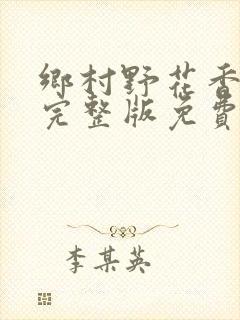 鄉村野花香
完整版免費
李某英